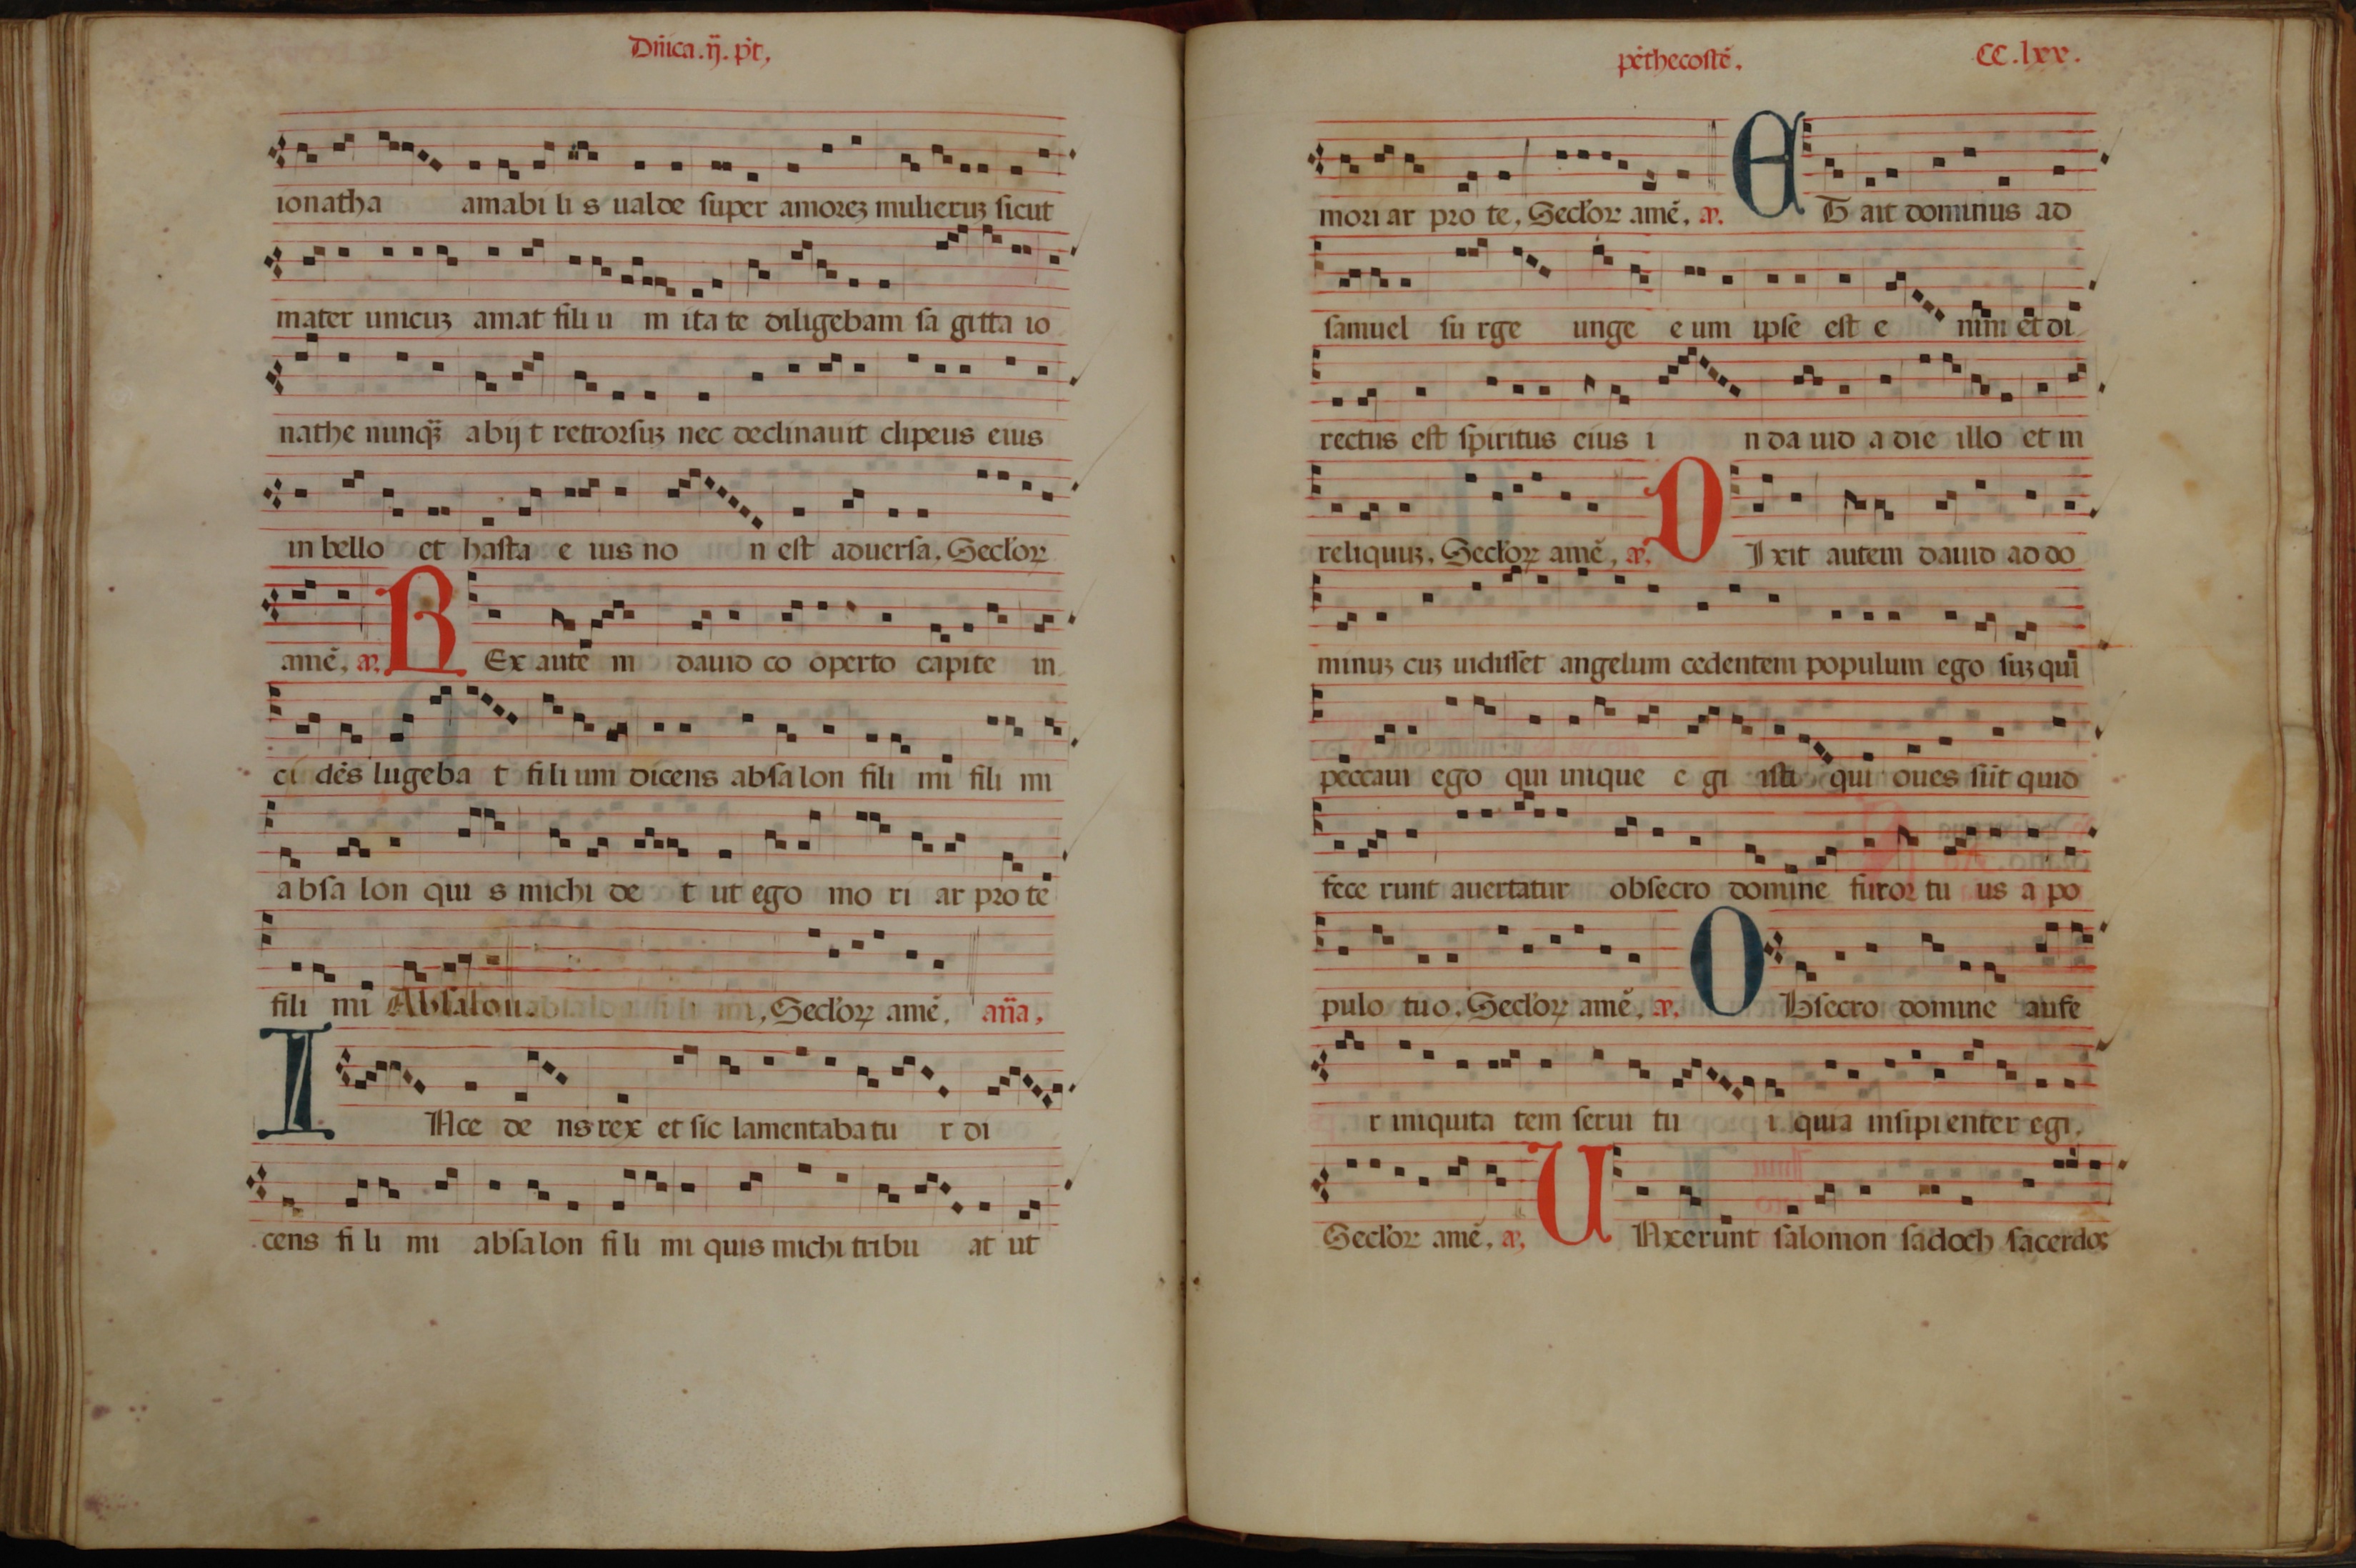 Dñica.ij. pt,
ionatha amabi li s ualde super amoreʒ mulieruʒ sicut
mater unicuʒ amat fili u m ita te diligebam sa gitta io
nathe nunqʒ̃ abij t retrorsuʒ nec declinauit clipeus eius
in bello et hasta e ius no n est aduersa. Seclorꝝ
amē, a. Rex autē m dauid co operto capite in
ci dēs lugeba t fili um dicens absa lon fili mi fili mi
absa lon qui s michi de t ut ego mo ri ar pro te
fili mi Absalon. Seclorꝝ amē. an̄a,
INce de ns rex et sic lamentaba tu r di
cens fi li mi absa lon fi li mi quis michi tribu at ut
pēthecostē. CC.lxx.
mori ar pro te, Seclorꝝ amē, a. ET ait dominus ad
samuel su rge unge e um ipse est e nim et di
rectus est spiritus eius i n da uid a die illo et in
reliquuʒ. Seclorꝝ amē, a. DIxit autem dauid ad do
minuʒ cuʒ uidisset angelum cedentem populum ego suʒ qui
peccaui ego qui inique e gi isti qui oues sūt quid
fece runt auertatur obsecro domine furor tu us a po
pulo tuo. Seclorꝝ amē, a. OBsecro domine aufe
r iniquita tem serui tu i quia insipi enter egi.
Seclorꝝ amē, a. UNxerunt salomon sadoch sacerdos